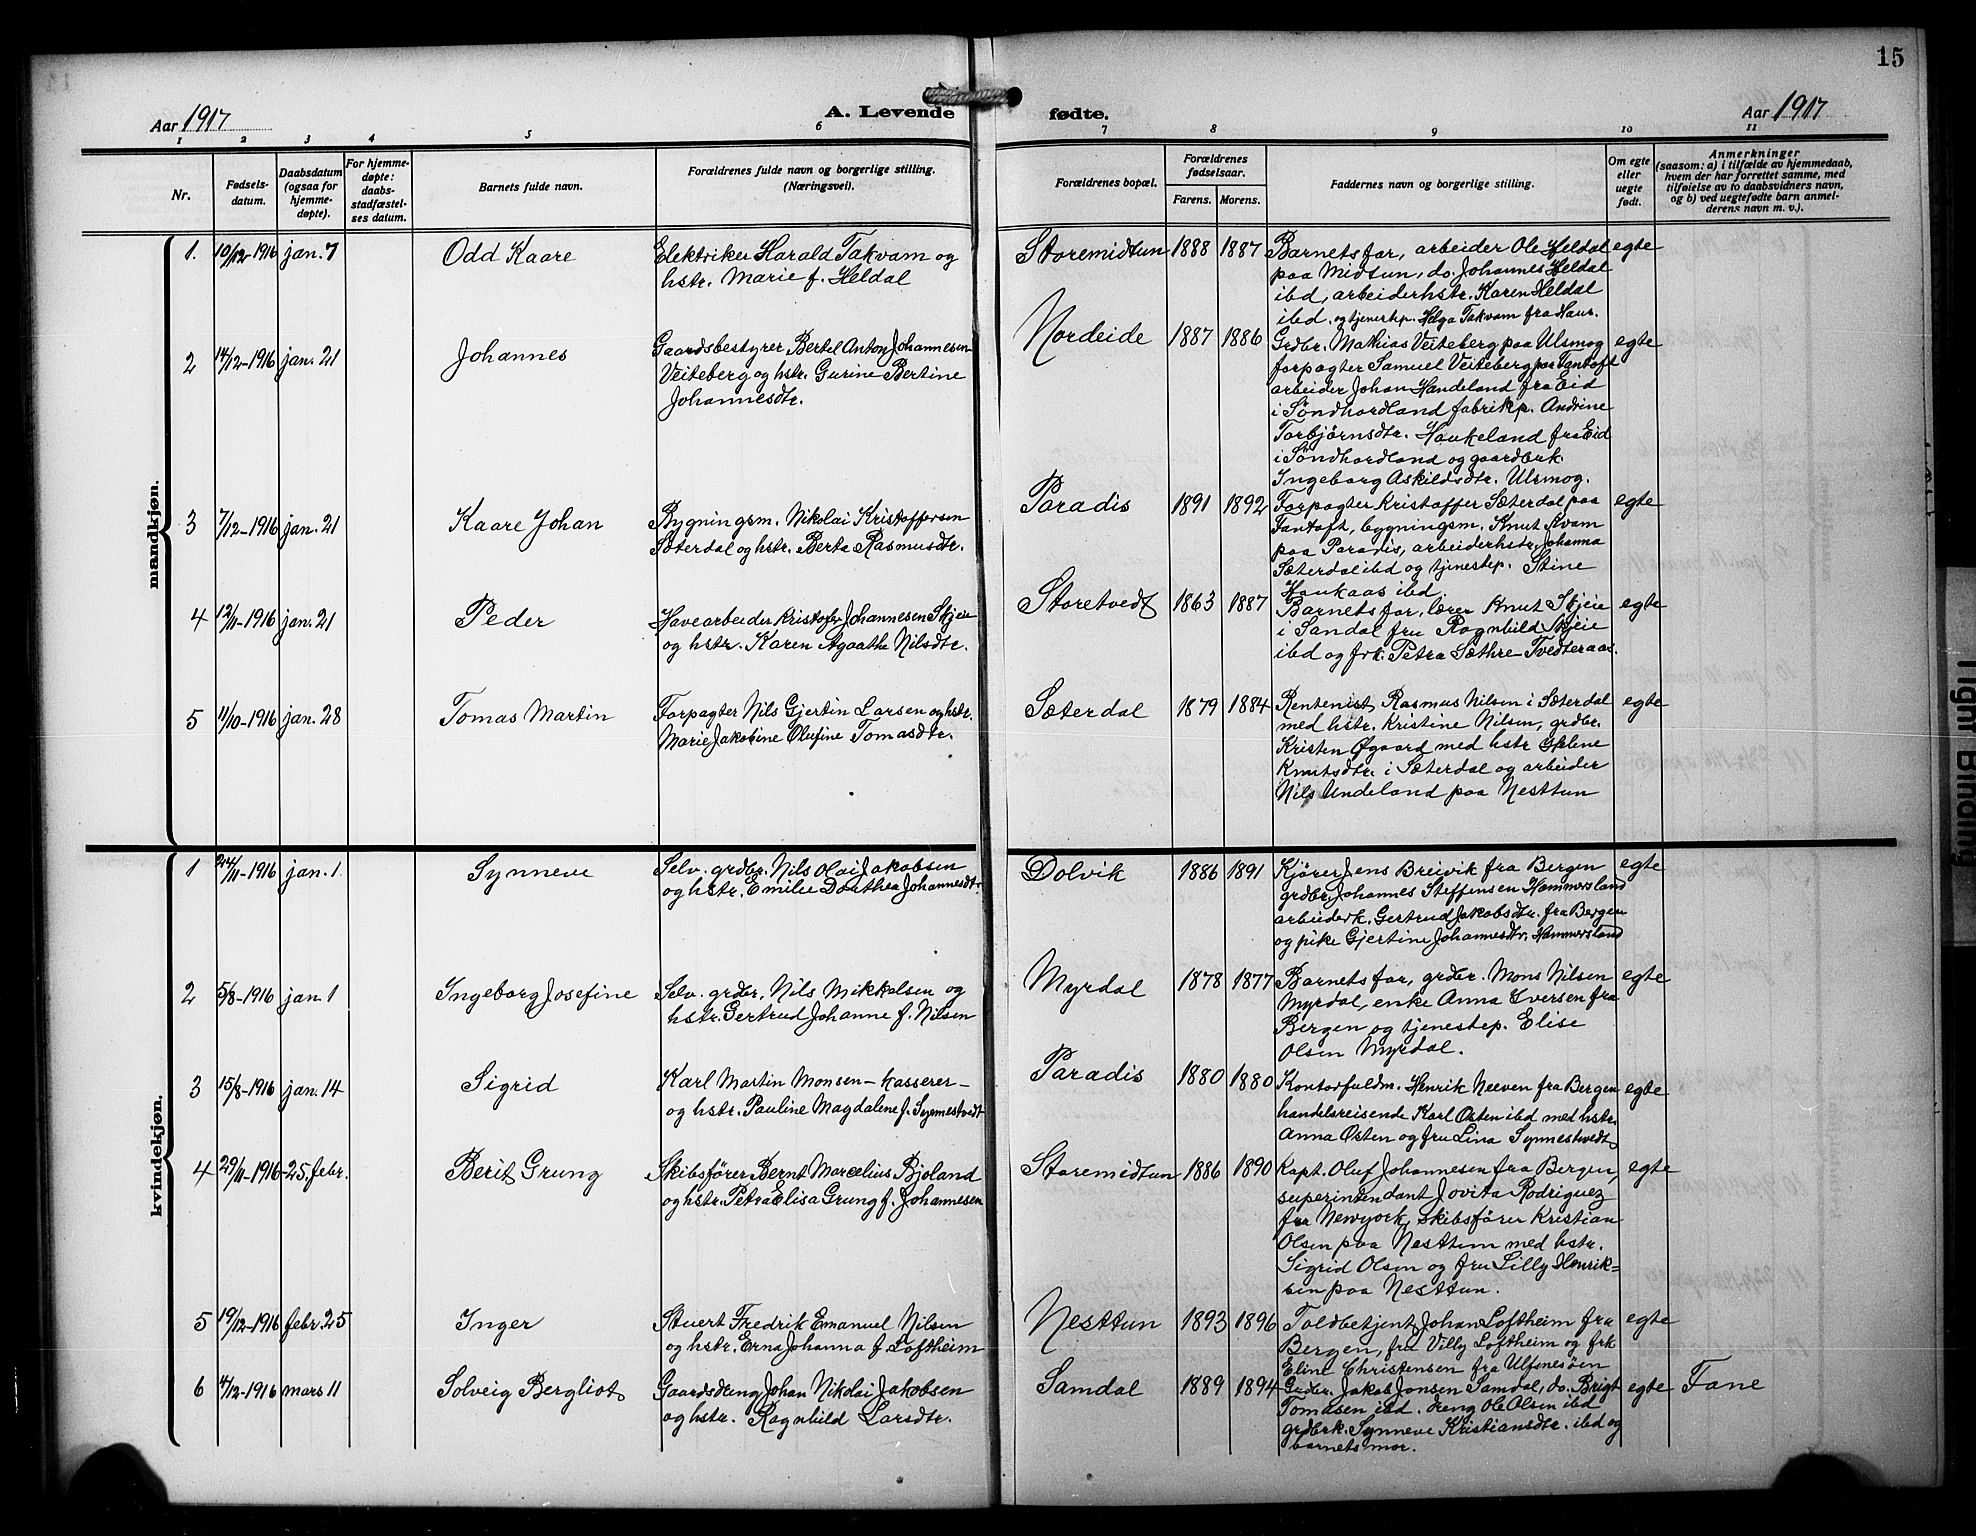 15
Aar 1917
A. Levende fødte.
Aar 1917
1 2 3 4 5 6 7 8 9 10 11
Nr.
Fødsels-
datum.
Daabsdatum
(ogsaa for
hjemme-
døpte).
For hjemme-
døpte:
daabs-
stadfæstel-
ses datum.
Barnets fulde navn.
Forældrenes fulde navn og borgerlige stilling.
(Næringsvei).
Forældrenes bopæl.
Forældrenes
fødselsaar.
Farens. Morens.
Faddernes navn og borgerlige stilling.
Om egte
eller
uegte
født.
Anmerkninger
(saasom: a) i tilfælde av hjemmedaab,
hvem der har forrettet samme, med
tilføielse av to daabsvidners navn,
og b) ved uegtefødte barn anmel-
derens navn m. v.).
mandkjøn.
1. 10/12-1916 jan. 7 Odd Kaare
Elektriker Harald Takvam og
hstr. Marie f. Heldal
Storemidtun 1888 1887
Barnets far, arbeider Ole Heldal
paa Midtun, do. Johannes Heldal
ibd, arbeiderhstr. Karen Heldal
ibd. og tjenerhp. Helga Takvam fra Haus.
egte
2 14/12-1916 jan. 21 Johannes
Gaardsbestyrer Bertel Anton Johannesen
Veiteberg og hstr. Gurine Bertine
Johannesdtr.
Nordeide 1887 1886
Grdbr. Mathias Veiteberg paa Ulsmog
forpagter Samuel Veiteberg paa Fantoft
arbeider Johan Handeland fra Eid
i Söndhordland fabrikp. Andrine
Torbjørnsdtr. Haukeland fra Eid
i Söndhordland og gaardbruk.
Ingeborg Askildsdtr. Ulsmog.
egte
3 7/12-1916 jan. 21 Kaare Johan
Bygningsm. Nikolai Kristoffersen
Sæterdal og hstr. Berta Rasmusdtr.
Paradis 1891 1892
Forpagter Kristoffer Sæterdal paa
Fantoft, bygningsm. Knut Kvam
paa Paradis, arbeiderhstr. Johanna
Sæterdal ibd og tjenestep. Stine
Haukaas ibd.
egte
4 12/11-1916 jan. 21 Peder
Havearbeider Kristofer Johannesen Skjeie
og hstr. Karen Agaathe Nilsdtr.
Storetvedt 1863 1887
Barnets far, lærer Knut Skjeie
i Sandal fru Ragnhild Skjeie
ibd og frk. Petra Sæthre-Tvedteraas.
egte
5 11/10-1916 jan. 28 Tomas Martin
Forpagter Nils Gjertin Larsen og hstr.
Marie Jakobine Olufine Tomasdtr.
Sæterdal 1879 1884
Rentenist Rasmus Nilsen i Sæterdal
med hstr. Kristine Nilsen, grdbr.
Kristen Øgaard med hstr Gjelene
Knutsdtr. i Sæterdal og arbeider
Nils Undeland paa Nesttun
egte
kvindekjøn.
1 24/11-1916 jan. 1 Synneve
Selv. grdbr. Nils Olai Jakobsen
og hstr. Emilie Dorthea Johannesdtr.
Dolvik 1886 1891
Kjører Jens Breivik fra Bergen
grdbr. Johannes Steffensen Hammersland
arbeiderk. Gertrud Jakobsdtr. fra Bergen
og pike Gjertine Johannesdtr. Hammersland
egte
2 5/8-1916 jan. 1 Ingeborg Josefine
Selv. grdbr. Nils Mikkelsen og
hstr. Gertrud Johanne f. Nilsen
Myrdal 1878 1877
Barnets far, grdbr. Mons Nilsen
Myrdal, enke Anna Iversen fra
Bergen og tjenestep. Elise
Olsen Myrdal.
egte
3 15/8-1916 jan. 14 Sigrid
Karl Martin Monsen - kasserer -
og hstr. Pauline Magdalene f. Synnestvedt
Paradis 1880 1880
Kontorfuldm. Henrik Neeven fra Bergen
handelsreisende Karl Østen ibd med hstr.
Anna Østen og fru Lina Synnestvedt
egte
4 29/11-1916 25. febr. Berit Grung
Skibsfører Bernt Marcelius Bjoland
og hstr. Petra Elisa Grung f. Johannesen
Storemidtun 1886 1890
Kapt. Oluf Johannesen fra Bergen,
superintendant Jovita Rodriguez
fra Newyork, skibsfører Kristian
Olsen paa Nesttun med hstr.
Sigrid Olsen og fru Lilly Henrik=
sen paa Nesttun.
egte
5 19/12-1916 febr. 25 Inger
Stuert Fredrik Emanuel Nilsen
og hstr. Erna Johanna f. Loftheim
Nesttun 1893 1896
Toldbetjent Johan Loftheim fra
Bergen, fru Villy Loftheim og frk
Eline Christensen fra Ulfsnesøen
egte
6 4/12-1916 mars 11 Solveig Bergliot
Gaardsdreng Johan Nikolai Jakobsen
og hstr. Ragnhild Larsdtr.
Samdal 1889 1894
Grdbr. Jakob Jonsen Samdal, do. Brigt
Tomasen ibd. dreng Ole Olsen ibd
grdbrk. Synneve Kristiansdtr. ibd og
barnets mor.
egte
Fane
Tight Binding